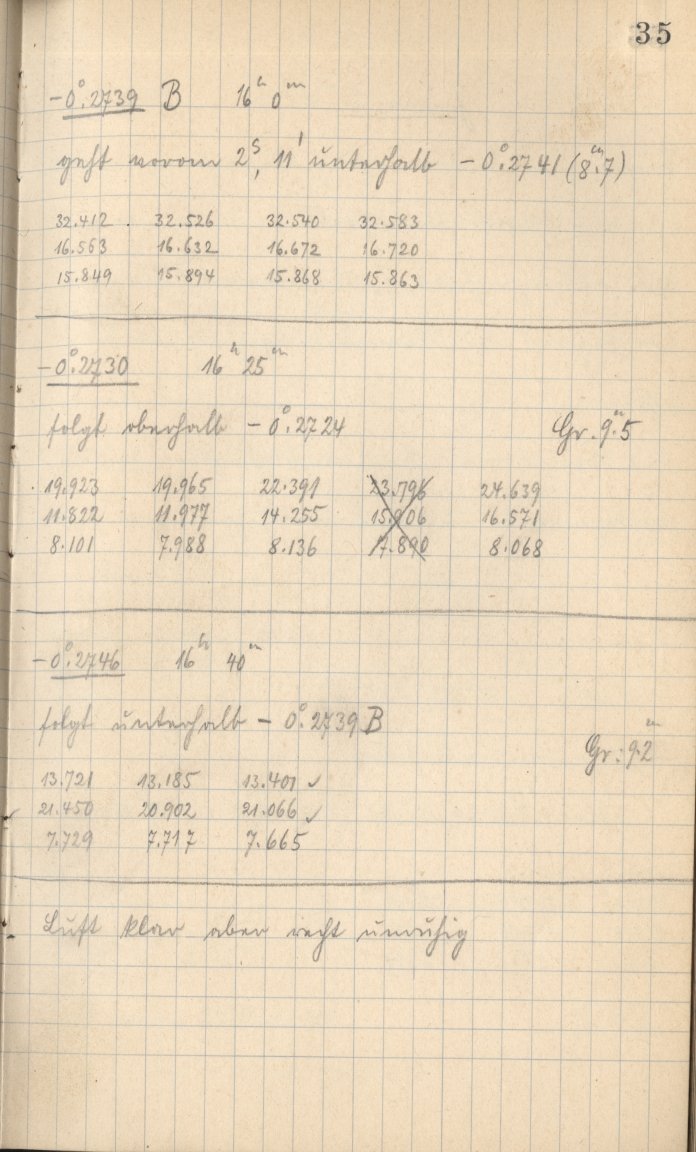 35
-0°.2739 B 16h 0m
geht voran 2s, 11' unterhalb -0°.2741 (8m.7)
32.412 . 32.526 32.540 32.583
16.563 16.632 16.672 16.720
15.849 15.894 15.868 15.863
-0°.2730 16h 25m
folgt oberhalb -0°.2724 Gr. 9m.5
19.923 19.965 22.391 23.796 24.639
11.822 11.977 14.255 15.906 16.571
8.101 7.988 8.136 7.890 8.068
-0°.2746 16h 40m
folgt unterhalb - 0°.2739 B
Gr: 9.2m
13.721 13.185 13.401 ✓
21.450 20.902 21.066 ✓
7.729 7.717 7.665
Luft klar aber recht unruhig